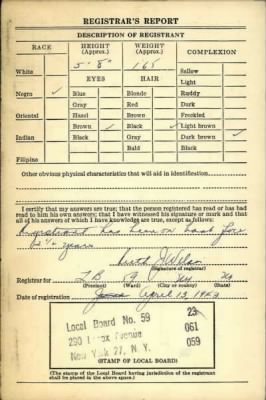 REGISTRAR'S REPORT
DESCRIPTION OF REGISTRANT
RACE HEIGHT (Approx.) WEIGHT (Approx.) COMPLEXION
White 5' 8" 165 Sallow
EYES HAIR Light
Negro ✓ Blue Blonde Ruddy
Gray Red Dark
Oriental Hazel Brown Freckled
Brown ✓ Black ✓ Light brown
Indian Black Gray Dark brown ✓
Bald Black
Filipino
Other obvious physical characteristics that will aid in identification
I certify that my answers are true; that the person registered has read or has had
read to him his own answers; that I have witnessed his signature or mark and that
all of his answers of which I have knowledge are true, except as follows:
Registrant has been on boat for
2 1/2 years
(Signature of registrar)
Registrar for L B 59 NY NY
(Precinct) (Ward) (City or county) (State)
Date of registration April 13, 1943
Local Board No. 59 23
290 Lenox Avenue 061
New York 27, N. Y. 059
(STAMP OF LOCAL BOARD)
(The stamp of the Local Board having jurisdiction of the registrant
shall be placed in the above space.)